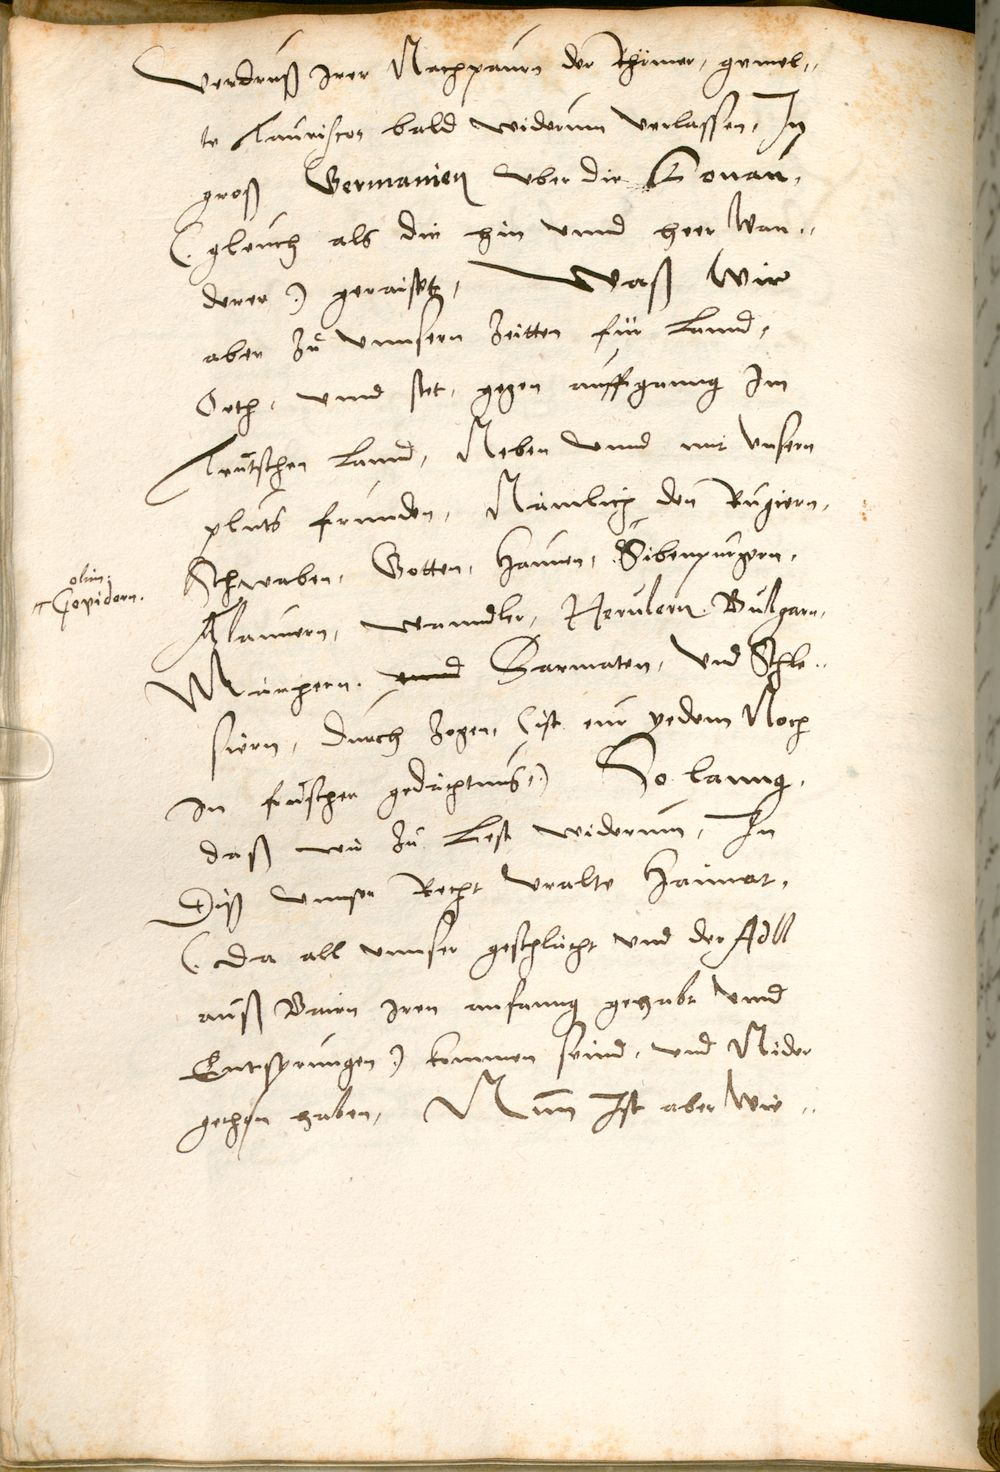 Verdruß Irer Nachpaurn der Rhömer, gemel„
te Tauriscos bald widerum verlassen, In
groß Germanien vber die Tonau,
(. gleuch als die hin vnnd heer Wan„
derer .) geraiset, Waß Wir
aber zu vnnsern Zeitten für Lannd,
Orth, vnnd stet, gegen auffganng Im
Teutschen Lannd, Neben vnnd mit Vnsern
pluts freunden, Nämlich den Rugiern,
Schwaben, Gotten, Haunen, Sibenpurgern,
olim: Gepidern.
Alannern, Wanndler, Herulern, Bulgarn,
Märhern. vnnd Sarmaten, Vnd Schle„
siern, durch Zogen, (ist eur yedem Noch
In frischer gedächtnus,.) So lanng,
daß wir Zu Lest widerum, In
Diß vnnser Recht Vralte Haimat,
(. Da all vnnser geschlächt vnd der Adll
auß Bairn Iren anfanng gehabt vnnd
Entsprungen .) kommen seind, vnd Nider
gethon haben, Nunn Ist aber Wie„